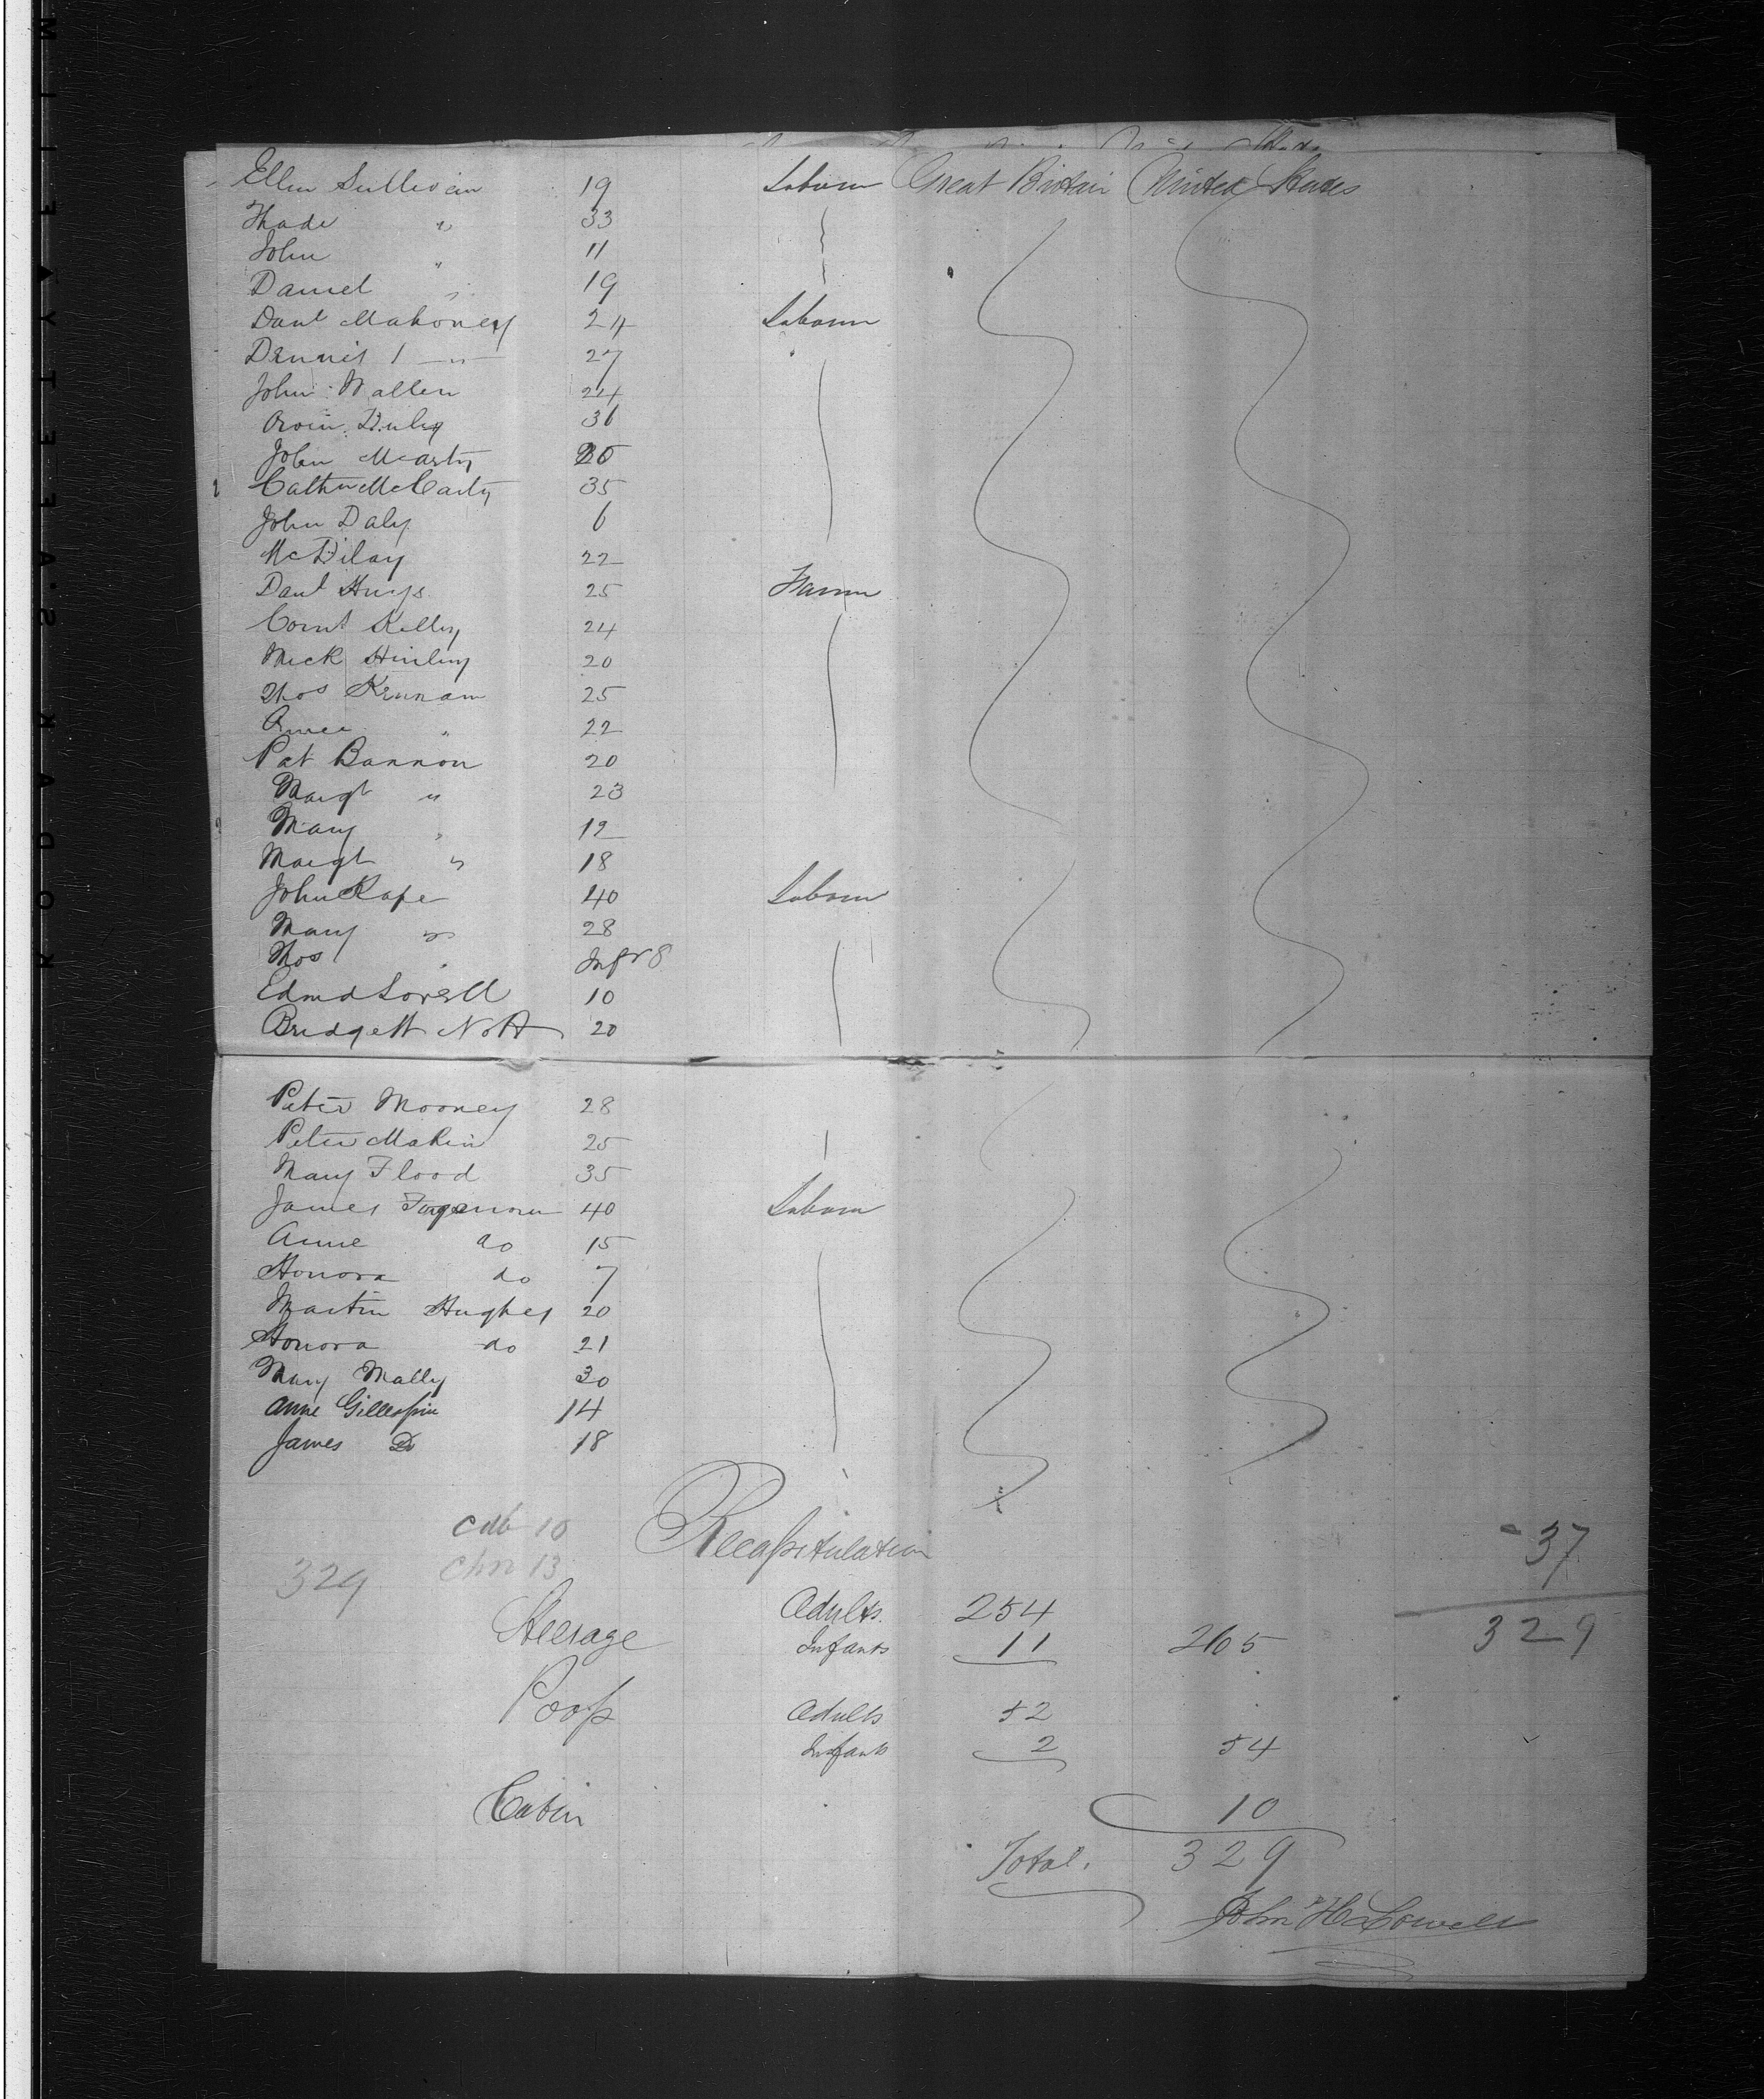 Ellen Sullivan 19 Laborer Great Britain United States
Thade " 33
John " 11
Daniel " 19
Danl Mahoney 24 Laborer
Dennis 1 —"— 27
John Wallen 24
Owin 36
John Mcarty 26
Cathn McCarty 35
John Daly 6
McDilay 22
Danl Huys 25 Farmer
Cornl Kelley 24
Mick Hinley 20
Thos Keenan 25
" 22
Pat Bannon 20
Margt " 23
Mary " 12
Margt " 18
John Rape 40 Laborer
Mary " 28
Thos " Inft 8
Edmd Lovell 10
Bridgett Nott 20
Peter Mooney 28
Peter Makin 25
Mary Flood 35
James 40 Laborer
Anne do 15
Honora do 7
Martin Hughes 20
Honora do 21
Mary Mally 30
Anne Gillespie 14
James Do 18
cab 10 Recapitulation 37
329 chn 13
Steerage Adults 254
Infants 11 265 329
Poop Adults 52
Infants 2 54
Cabin 10
Total. 329
John H Lowell
KODAK SAFETY FILM